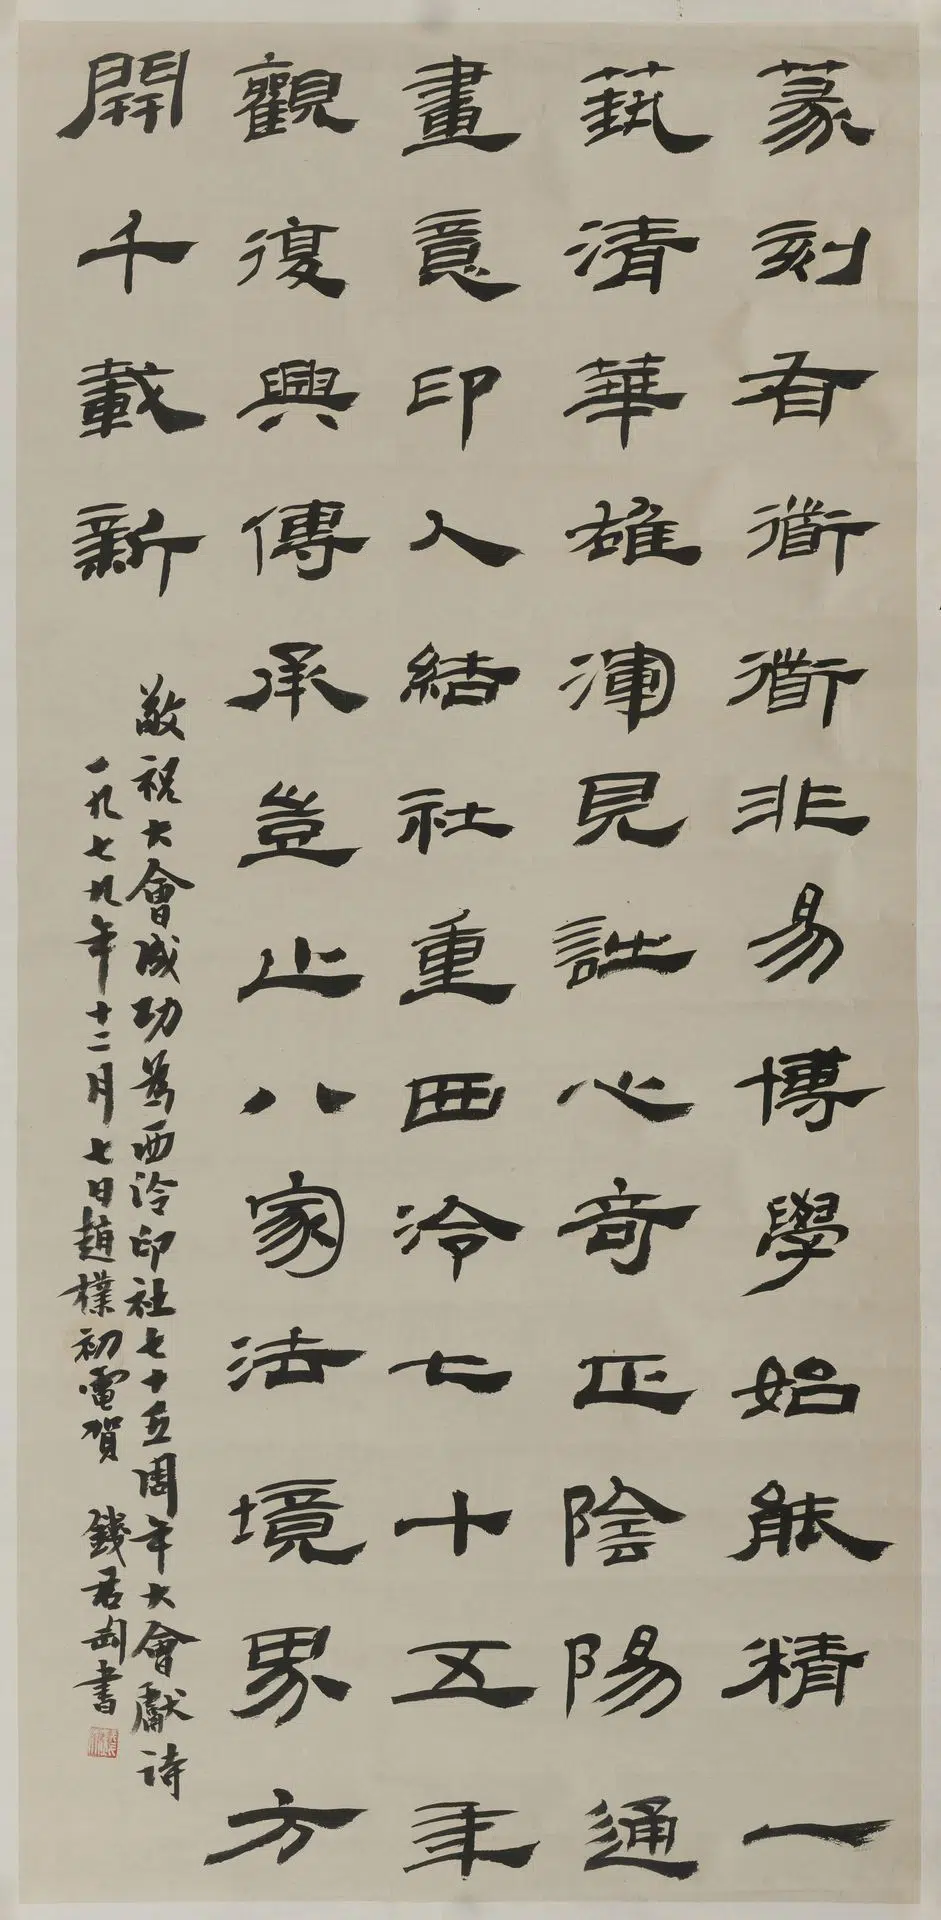 篆刻有衜衜非易博學始能精一
蓺清華雄渾見心奇正陰陽通
畫意印人結社重西泠七十五年
觀復興傳承豈止八家法境界方
開千載新
敬祝大會成功爲西泠印社七十五周年大會獻詩
一九七九年十二月七日趙樸初電賀 錢君匋書